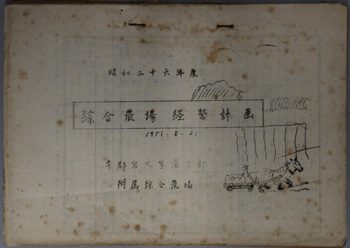 昭和二十六年度
綜合農場経営計画
1951. 5. 1.
附属綜合農場